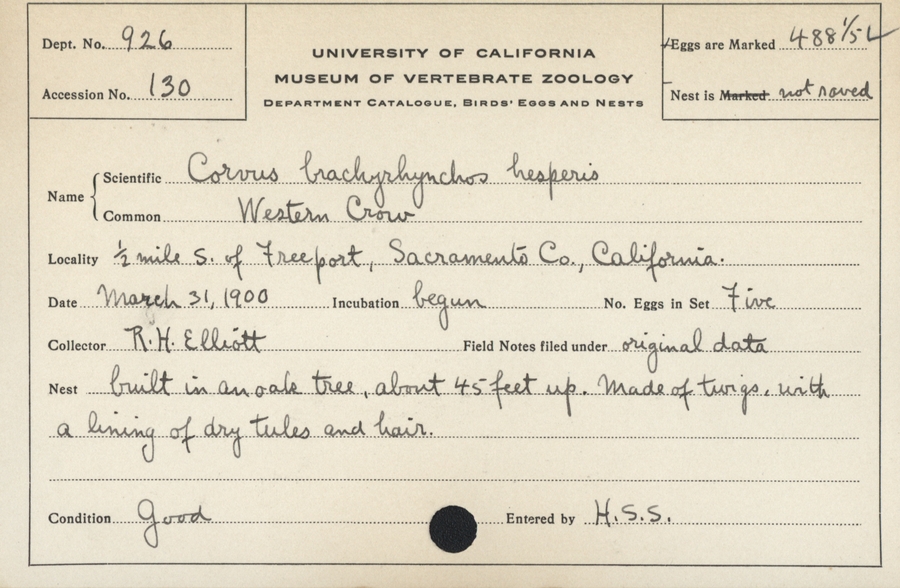 Dept. No. 926
Accession No. 130
UNIVERSITY OF CALIFORNIA
MUSEUM OF VERTEBRATE ZOOLOGY
DEPARTMENT CATALOGUE, BIRDS' EGGS AND NESTS
✓Eggs are Marked 488 1/5 ✓
Nest is Marked not saved
Name
Scientific Corvus brachyrhynchos hesperis
Common Western Crow
Locality ½ mile S. of Freeport, Sacramento Co., California.
Date March 31, 1900 Incubation begun No. Eggs in Set Five
Collector R.H. Elliott Field Notes filed under original data
Nest built in an oak tree, about 45 feet up. Made of twigs, with
a lining of dry tules and hair.
Condition Good Entered by H.S.S.